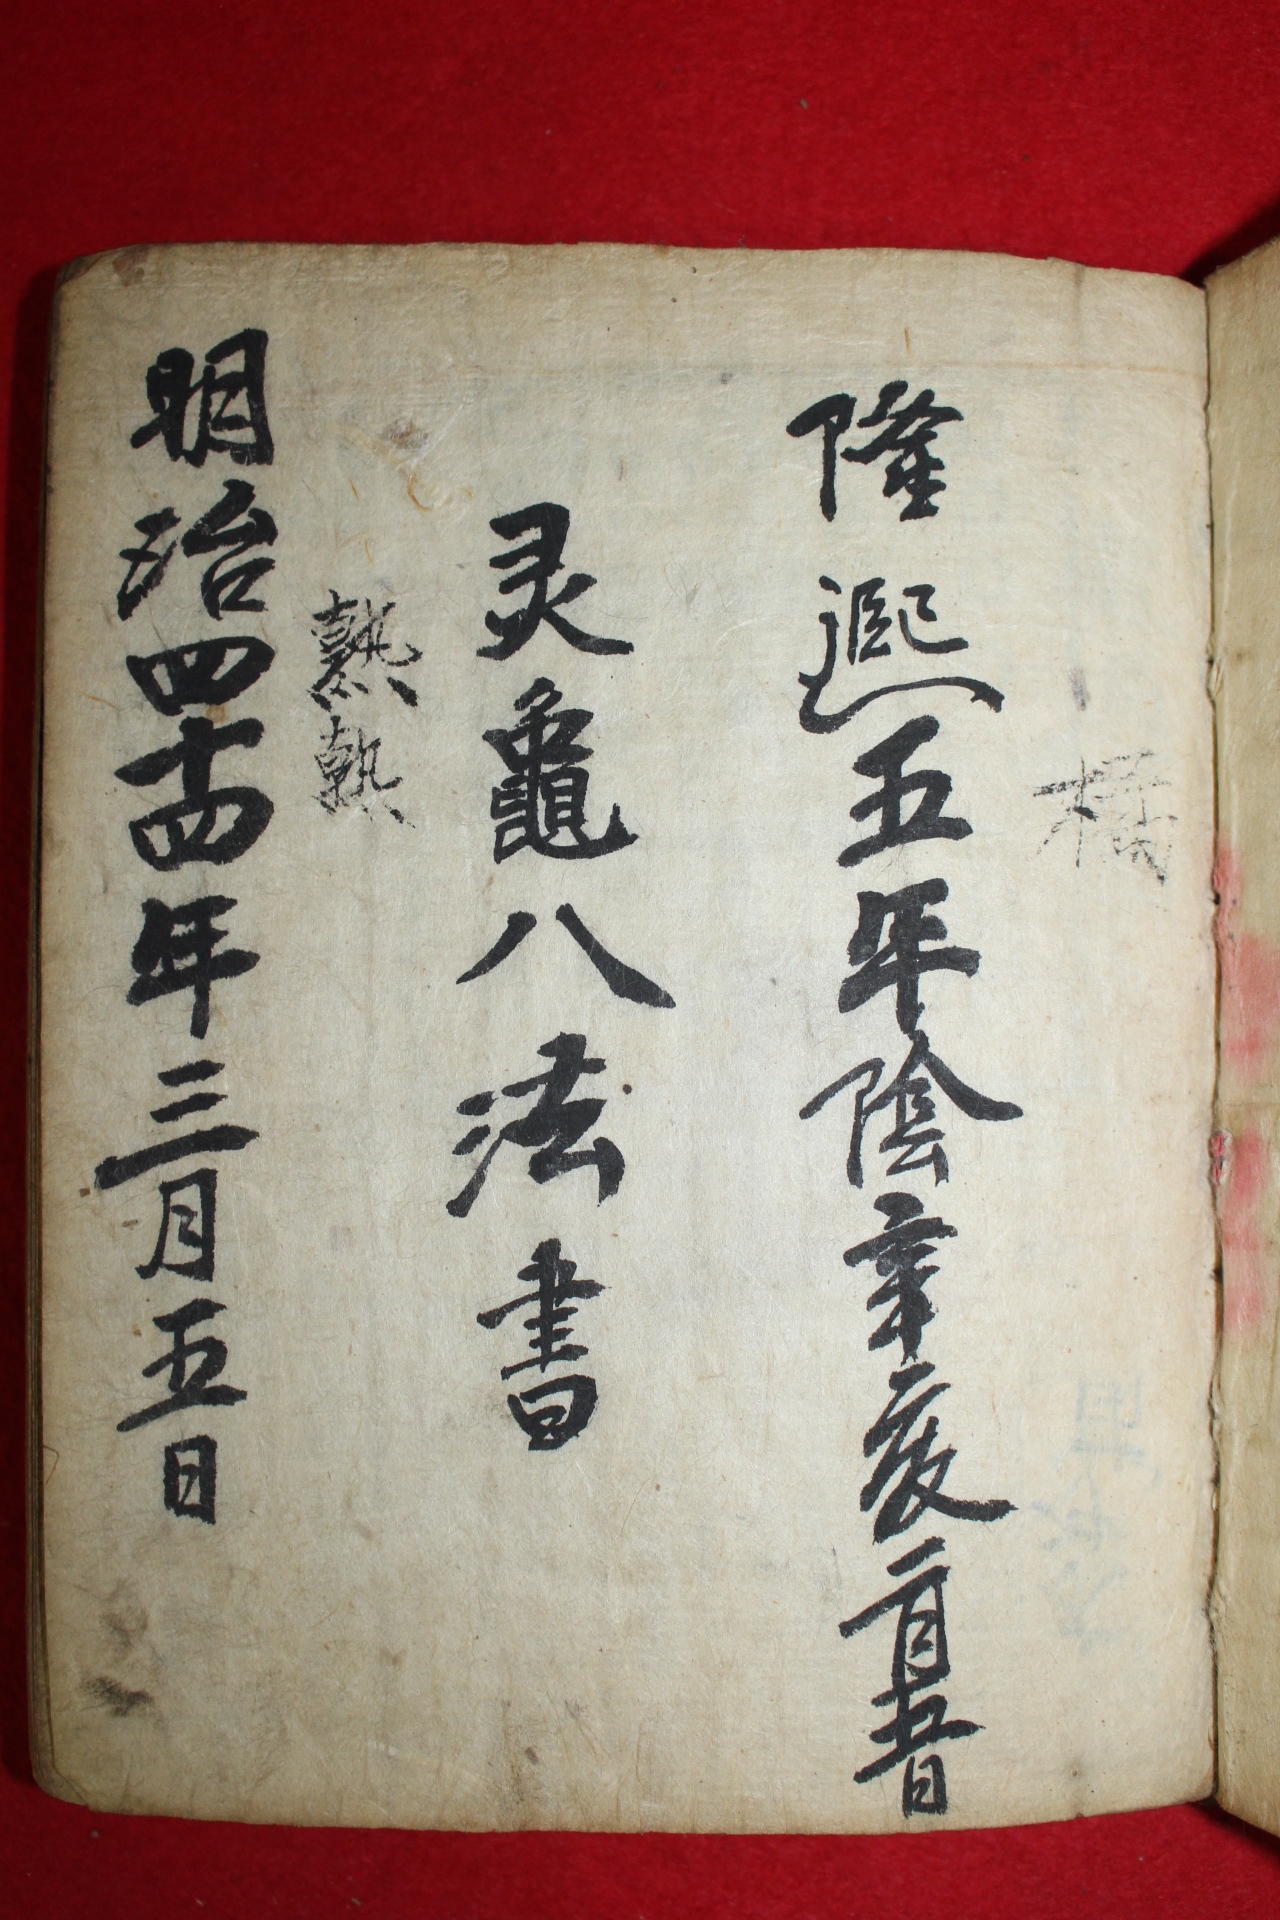 隆熙五年陰辛亥二月五日
灵龜八法書
熱熱
明治四十四年三月五日